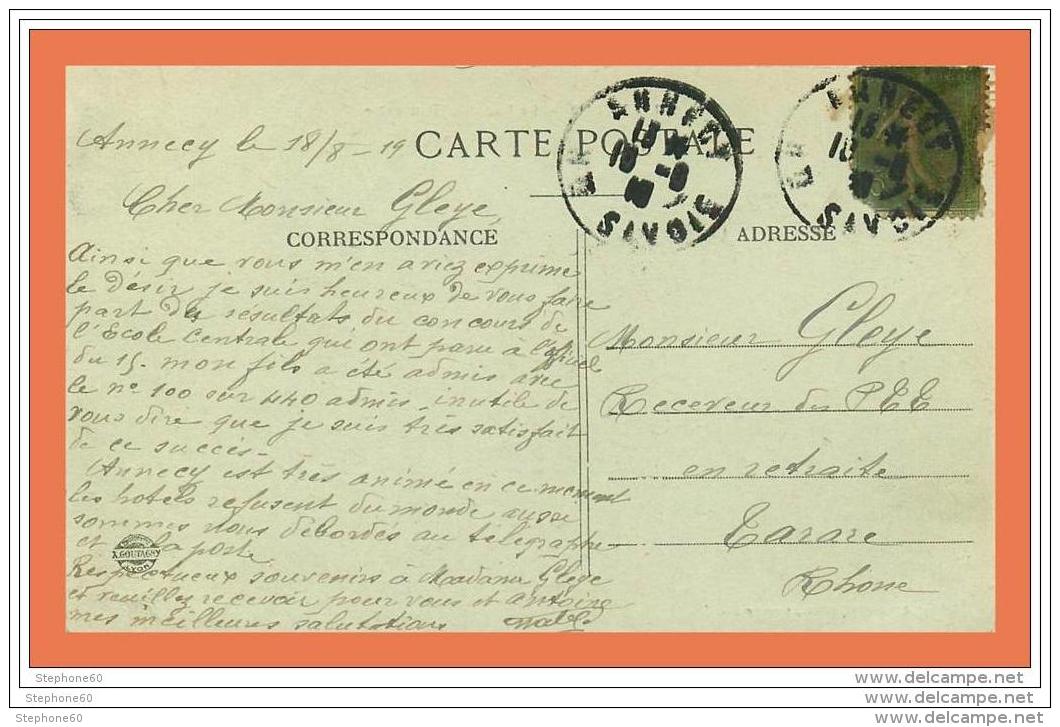 Annecy le 18/8-19
CARTE POSTALE
Cher Monsieur Gleye,
CORRESPONDANCE
Ainsi que vous m'en aviez exprimé
le désir je suis heureux de vous faire
part des résultats du concours de
l'Ecole Centrale qui ont paru à l'officiel
du 15. mon fils a été admis avec
le n° 100 sur 440 admis inutile de
vous dire que je suis très satisfait
de ce succès-
Annecy est très animé en ce moment
les hotels refusent du monde aussi
sommes nous débordés au télégraphe
et à la poste
Respectueux souvenirs à Madame Gleye
et veuillez recevoir pour vous et Antoine
mes meilleures salutations
ANNECY
ANNECY
ADRESSE
Monsieur Gleye
Receveur des PTT
en retraite
Tarare
Rhône
A. GOUTAGNY
LYON
Stephone60
Stephone60
Stephone60
www.delcampe.net
www.delcampe.net
www.delcampe.net